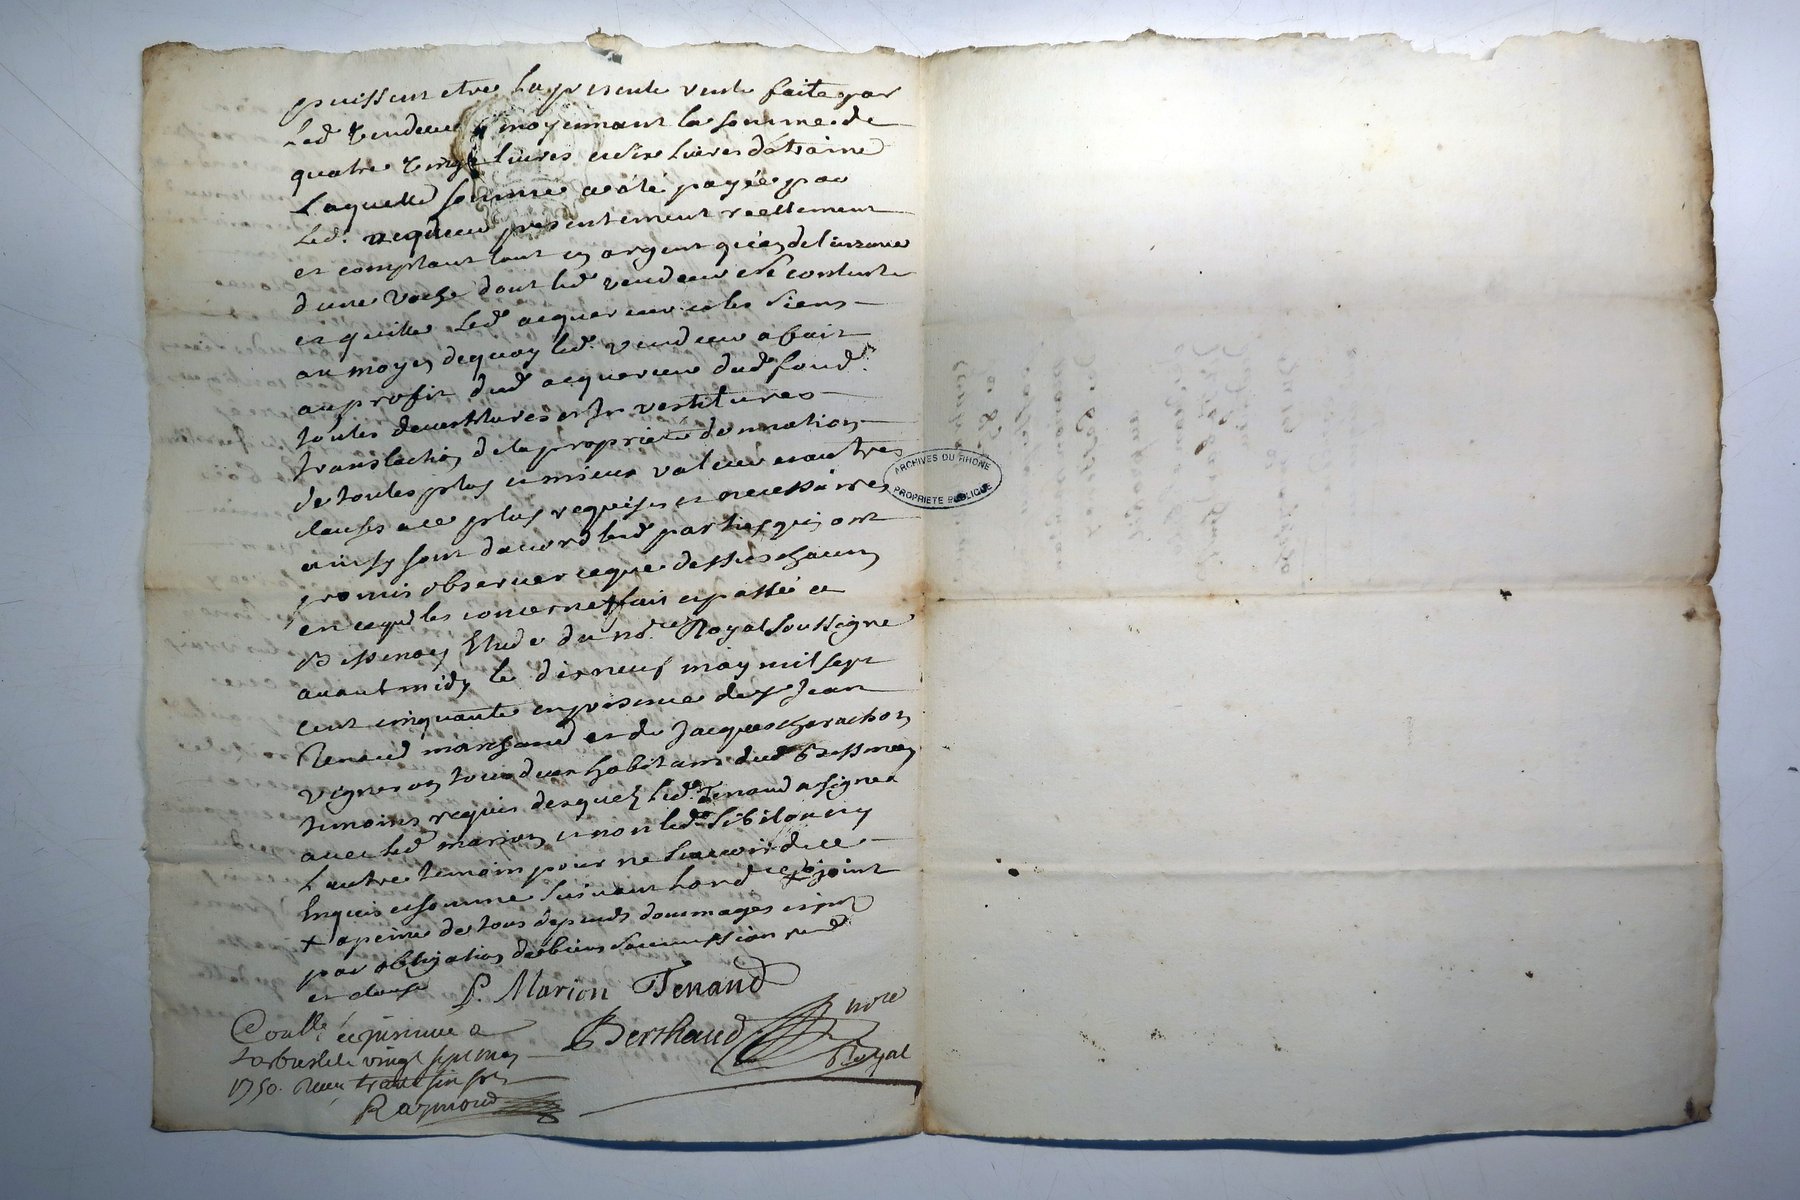 puissent etre la presente vente faitte par
led. vendeur moyennant la somme de
quatre vingt livres et six livres détraine
laquelle somme a été payée par
led. acquereur presentement reellement
et comptant tout en argent qu'en delivrance
d'une vache dont led. vendeur est contente
et quitte led. acquereur et les siens
au moyen dequoy led. vendeur a fait
au profit dud. acquereur dud. fond.
toutes devestitures et Investitures
translation de la propriété donnation
de toutes plus et mieux valeur et autres
clauses a ce plus requises et necessaires
ainsy sont d'accord lesd. parties qui ont
promis observer ce que dessus chacun
en ce qui les concerne + fait et passé a
Bessenay Etude du nore. Royal soussigne
avant midy le dix neuf may mil sept
cent cinquante en presence de sr. Jean
Tenaud marchand et de Jacques charachon
vigneron tous deux habitans dud. Bessenay
temoins requis desquels led. sr. Tenaud a signé
avec led. marion et non led. ny
l'autre temoin pour ne sçavoir de ce
Enquis et somme suivant l'ord. + joint
+ a peine de tous depends dommages et
par obligation de biens soumission
et clause P. Marion Tenaud
Berthaud nore Royal
Conllé. et insinué a
larbresle le vingt sept may
1750. Reçu trente six sols
Raymond
ARCHIVES DU RHONE
PROPRIETE PUBLIQUE